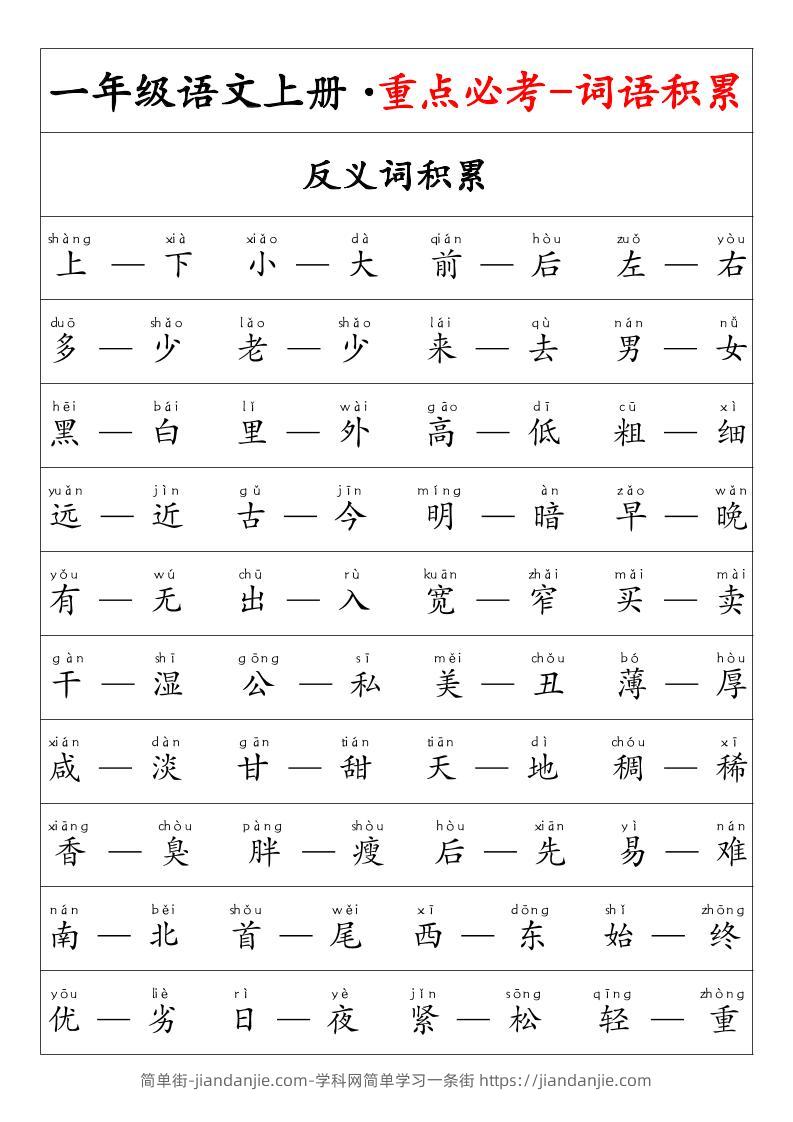 一年级语文上册·重点必考-词语积累
反义词积累
shàng xià xiǎo dà qián hòu zuǒ yòu
上 — 下 小 — 大 前 — 后 左 — 右
duō shǎo lǎo shǎo lái qù nán nǚ
多 — 少 老 — 少 来 — 去 男 — 女
hēi bái lǐ wài gāo dī cū xì
黑 — 白 里 — 外 高 — 低 粗 — 细
yuǎn jìn gǔ jīn míng àn zǎo wǎn
远 — 近 古 — 今 明 — 暗 早 — 晚
yǒu wú chū rù kuān zhǎi mǎi mài
有 — 无 出 — 入 宽 — 窄 买 — 卖
gàn shī gōng sī měi chǒu bó hòu
干 — 湿 公 — 私 美 — 丑 薄 — 厚
xián dàn gān tián tiān dì chóu xī
咸 — 淡 甘 — 甜 天 — 地 稠 — 稀
xiāng chòu pàng shòu hòu xiān yì nán
香 — 臭 胖 — 瘦 后 — 先 易 — 难
nán běi shǒu wěi xī dōng shǐ zhōng
南 — 北 首 — 尾 西 — 东 始 — 终
yōu liè rì yè jǐn sōng qīng zhòng
优 — 劣 日 — 夜 紧 — 松 轻 — 重
简单街-jiandanjie.com-学科网简单学习一条街 https://jiandanjie.com